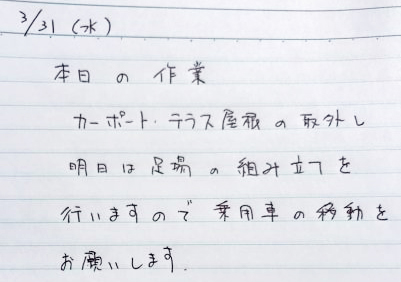 3/31 (水)
本日の作業
カーポート・テラス屋根の取外し
明日は足場の組み立てを
行いますので乗用車の移動を
お願いします.